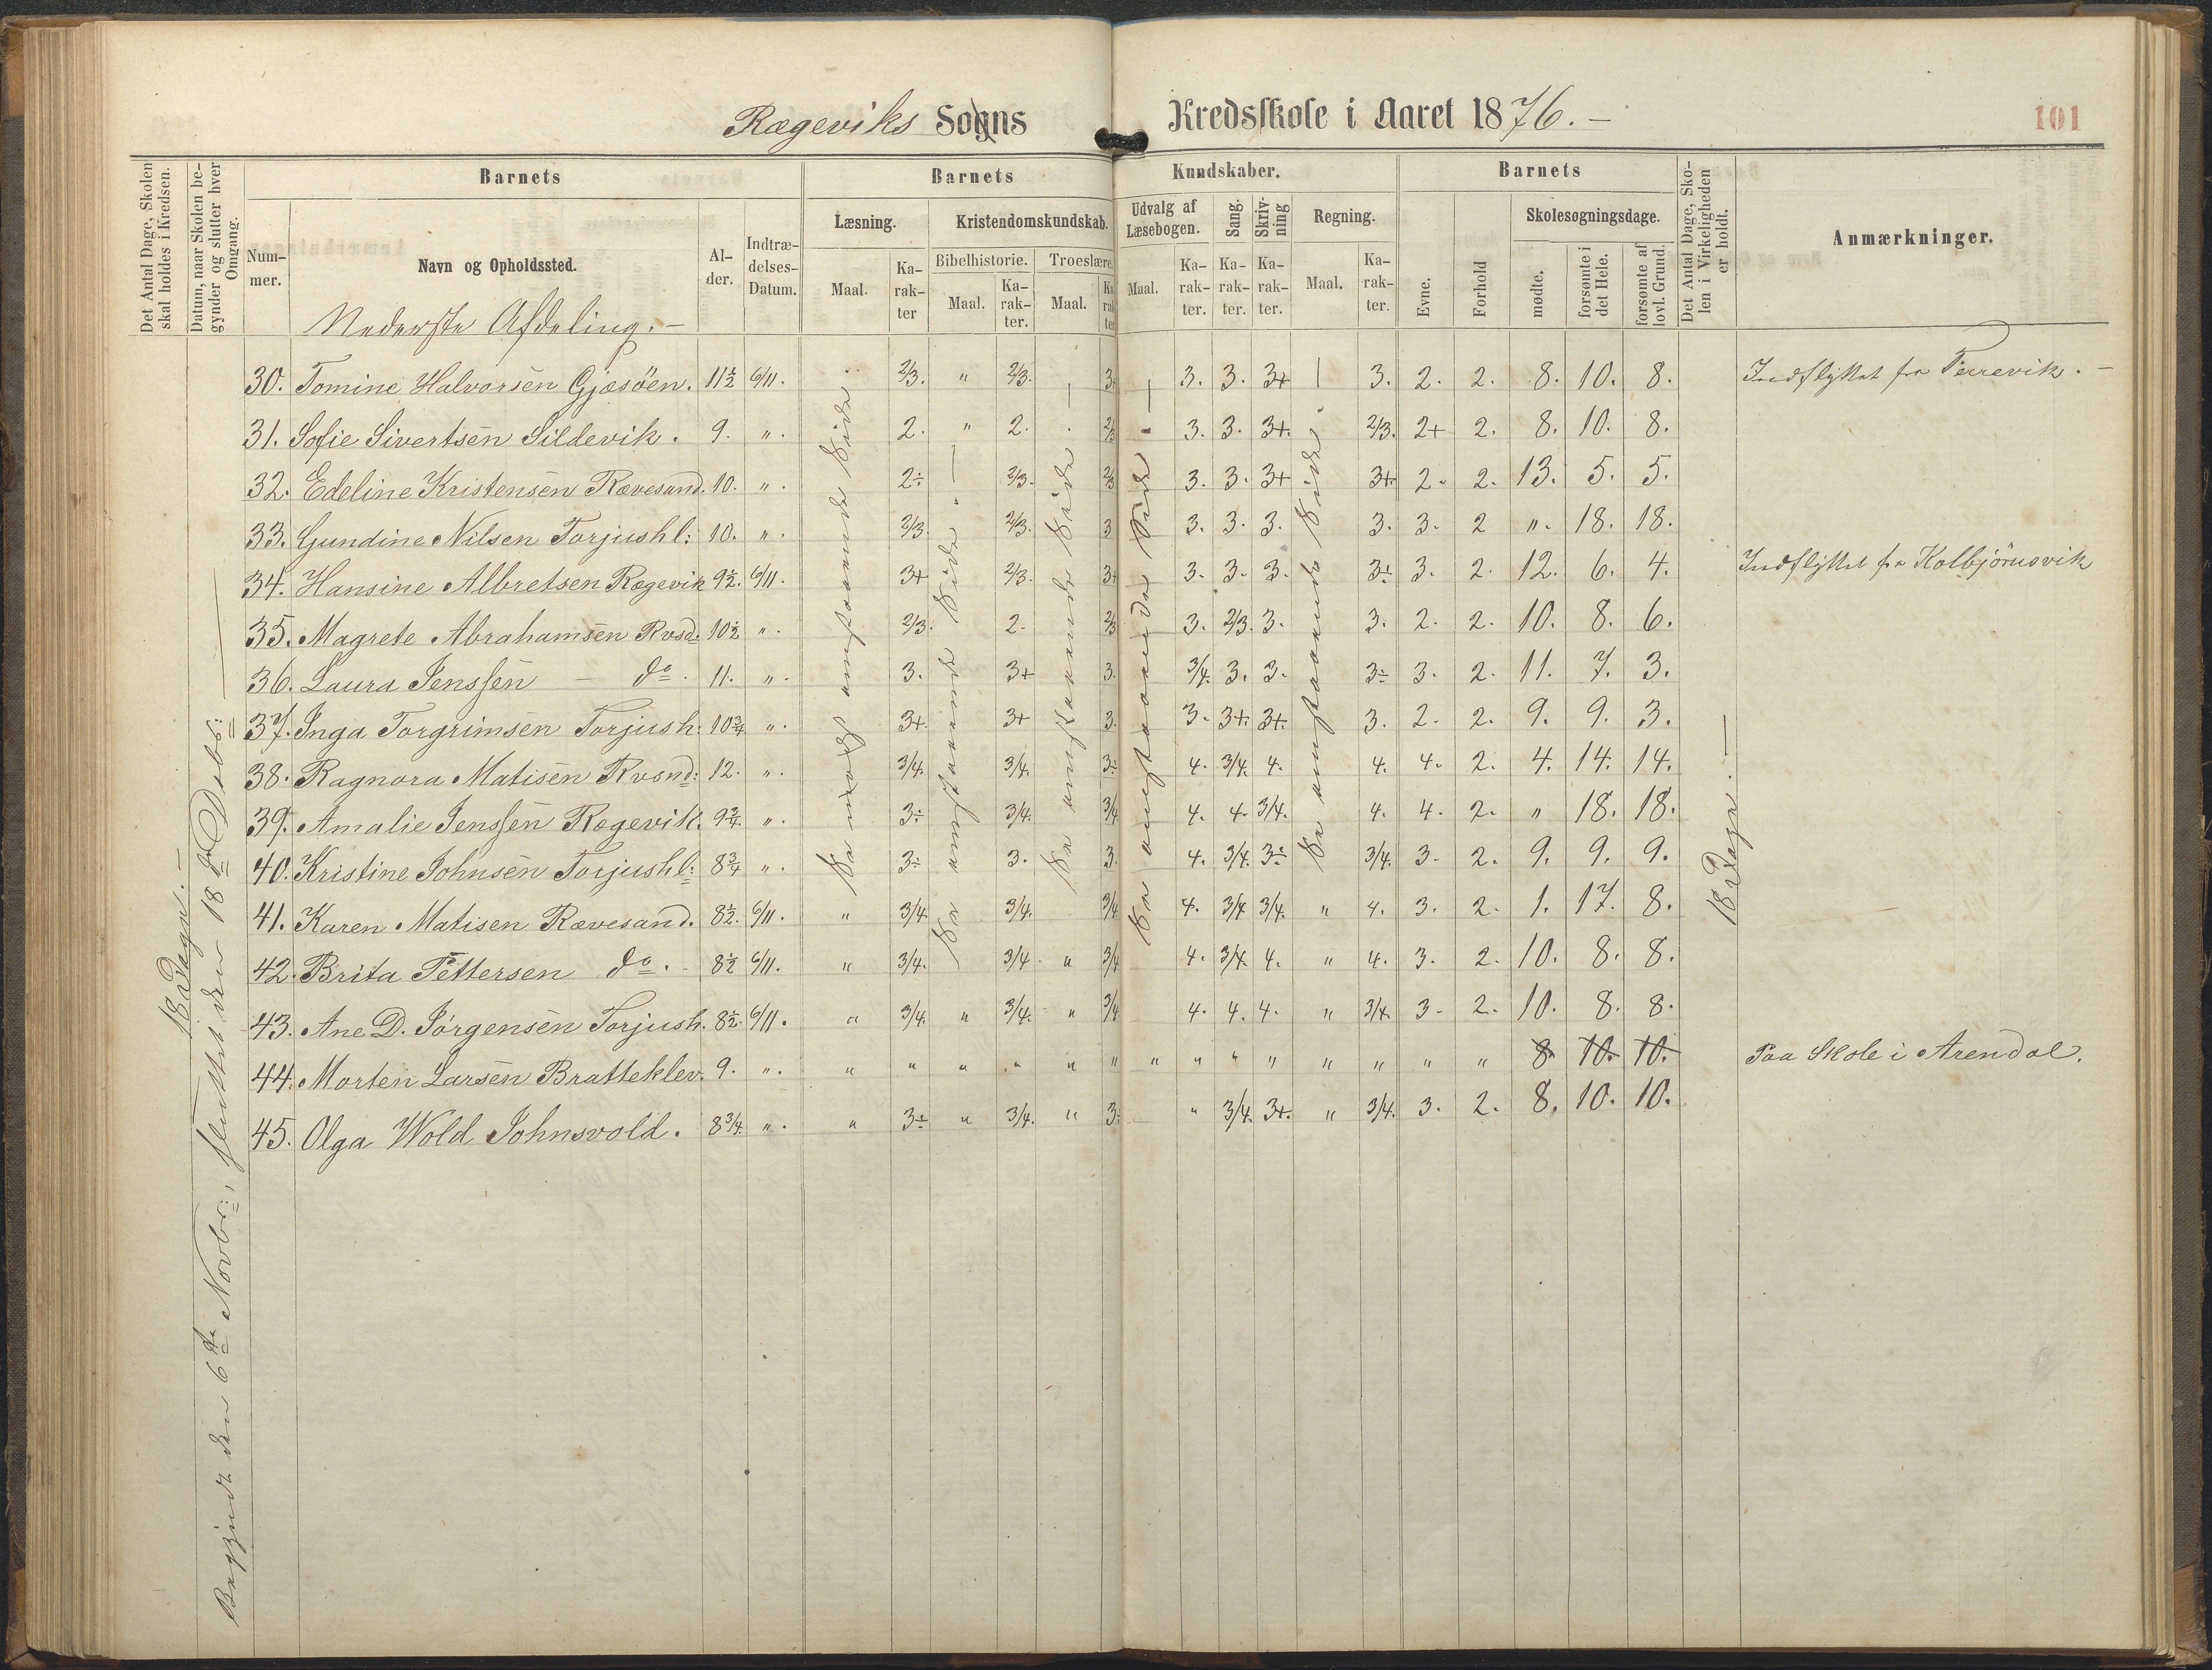 Rægeviks Sogns Kredsskole i Aaret 1876. –
101
Det Antal Dage, Skolen skal holdes i Kredsen.
Datum, naar Skolen begynder og slutter hver Omgang.
Barnets
Nummer.
Navn og Opholdssted.
Alder.
Indtrædelses-Datum.
Barnets Kundskaber.
Læsning.
Maal.
Karakter
Kristendomskundskab.
Bibelhistorie.
Maal.
Karakter.
Troeslære.
Maal.
Karakter
Udvalg af Læsebogen.
Maal.
Karakter.
Sang.
Karakter.
Skrivning
Karakter.
Regning.
Maal.
Karakter.
Barnets
Evne.
Forhold
Skolesøgningsdage.
mødte.
forsømte i det Hele.
forsømte af lovl. Grund.
Det Antal Dage, Skolen i Virkeligheden er holdt.
Anmærkninger.
Nederste Afdeling. –
30. Tomine Halvorsen Gjæsøen. 11½ 6/11. 2/3. " 2/3. 3+ 3. 3. 3+ 3. 2. 2. 8. 10. 8. Indflyttet fra
31. Sofie Sivertsen Sildevik. 9. ". 2. " 2. 2/3 3. 3. 3+. 2/3. 2+ 2. 8. 10. 8.
32. Edeline Kristensen Rævesand. 10. ". 2÷ 2/3. 2/3 3. 3. 3+ 3+. 2. 2. 13. 5. 5.
33. Gundine Nilsen Torjushl: 10. ". 2/3. 2/3. 3 3. 3. 3. 3. 3. 2 ". 18. 18.
34. Hansine Albretsen Rægevik 9½. 6/11. 3+ 2/3. 3+ 3. 3. 3. 3÷ 3. 2. 12. 6. 4. Indflyttet fra Kolbjörnsvik
35. Magrete Abrahamsen Rvsd: 10½ ". 2/3. 2. 2/3 3. 2/3. 3. 3. 2. 2. 10. 8. 6.
36. Laura Jenssen – do. 11. ". 3. 3+ 3. 3/4. 3. 3. 3÷ 3. 2. 11. 7. 3.
37. Inga Torgrimsen Torjush: 10¾ ". 3+. 3+ 3. 3. 3+. 3+. 3. 2. 2. 9. 9. 3.
38. Ragnora Matisen Rvsnd: 12. ". 3/4. 3/4. 3÷ 4. 3/4. 4. 4. 4. 2. 4. 14. 14.
39. Amalie Jenssen Rægevik. 9¾. ". 3÷ 3/4. 3/4 4. 4. 3/4. 4. 4. 2. " 18. 18.
40. Kristine Johnsen Torjushl: 8¾ ". 3÷ 3. 3. 4. 3/4. 3÷ 3/4. 3. 2. 9. 9. 9.
41. Karen Matisen Rævesand. 8½. 6/11. " 3/4 3/4. 3/4 4. 3/4 3/4. " 4. 3. 2. 1. 17. 8.
42. Brita Pettersen do. 8½ 6/11. " 3/4. 3/4 " 3/4 4. 3/4. 4. " 4. 3. 2. 10. 8. 8.
43. Ane D. Jörgensen Torjush. 8½. 6/11. " 3/4. " 3/4. " 3/4 4. 4. 4. " 3/4. 3. 2. 10. 8. 8.
44. Morten Larsen Bratteklev. 9. ". " " " " " " " " " " " " " " 8. 10. 10. Paa Skole i Arendal.
45. Olga Wold Johnsvold. 8¾. ". " 3÷ " 3/4. " 3÷ " 3/4. 3+. " 3/4. 3. 2. 8. 10. 10.
18 Dage. –
Begyndt den 6te Novbr:, sluttet den 18de Debr:
Se modsaaende Side.
Se Side.
Se Side.
Se Side.
Se Side.
18 Dage. –